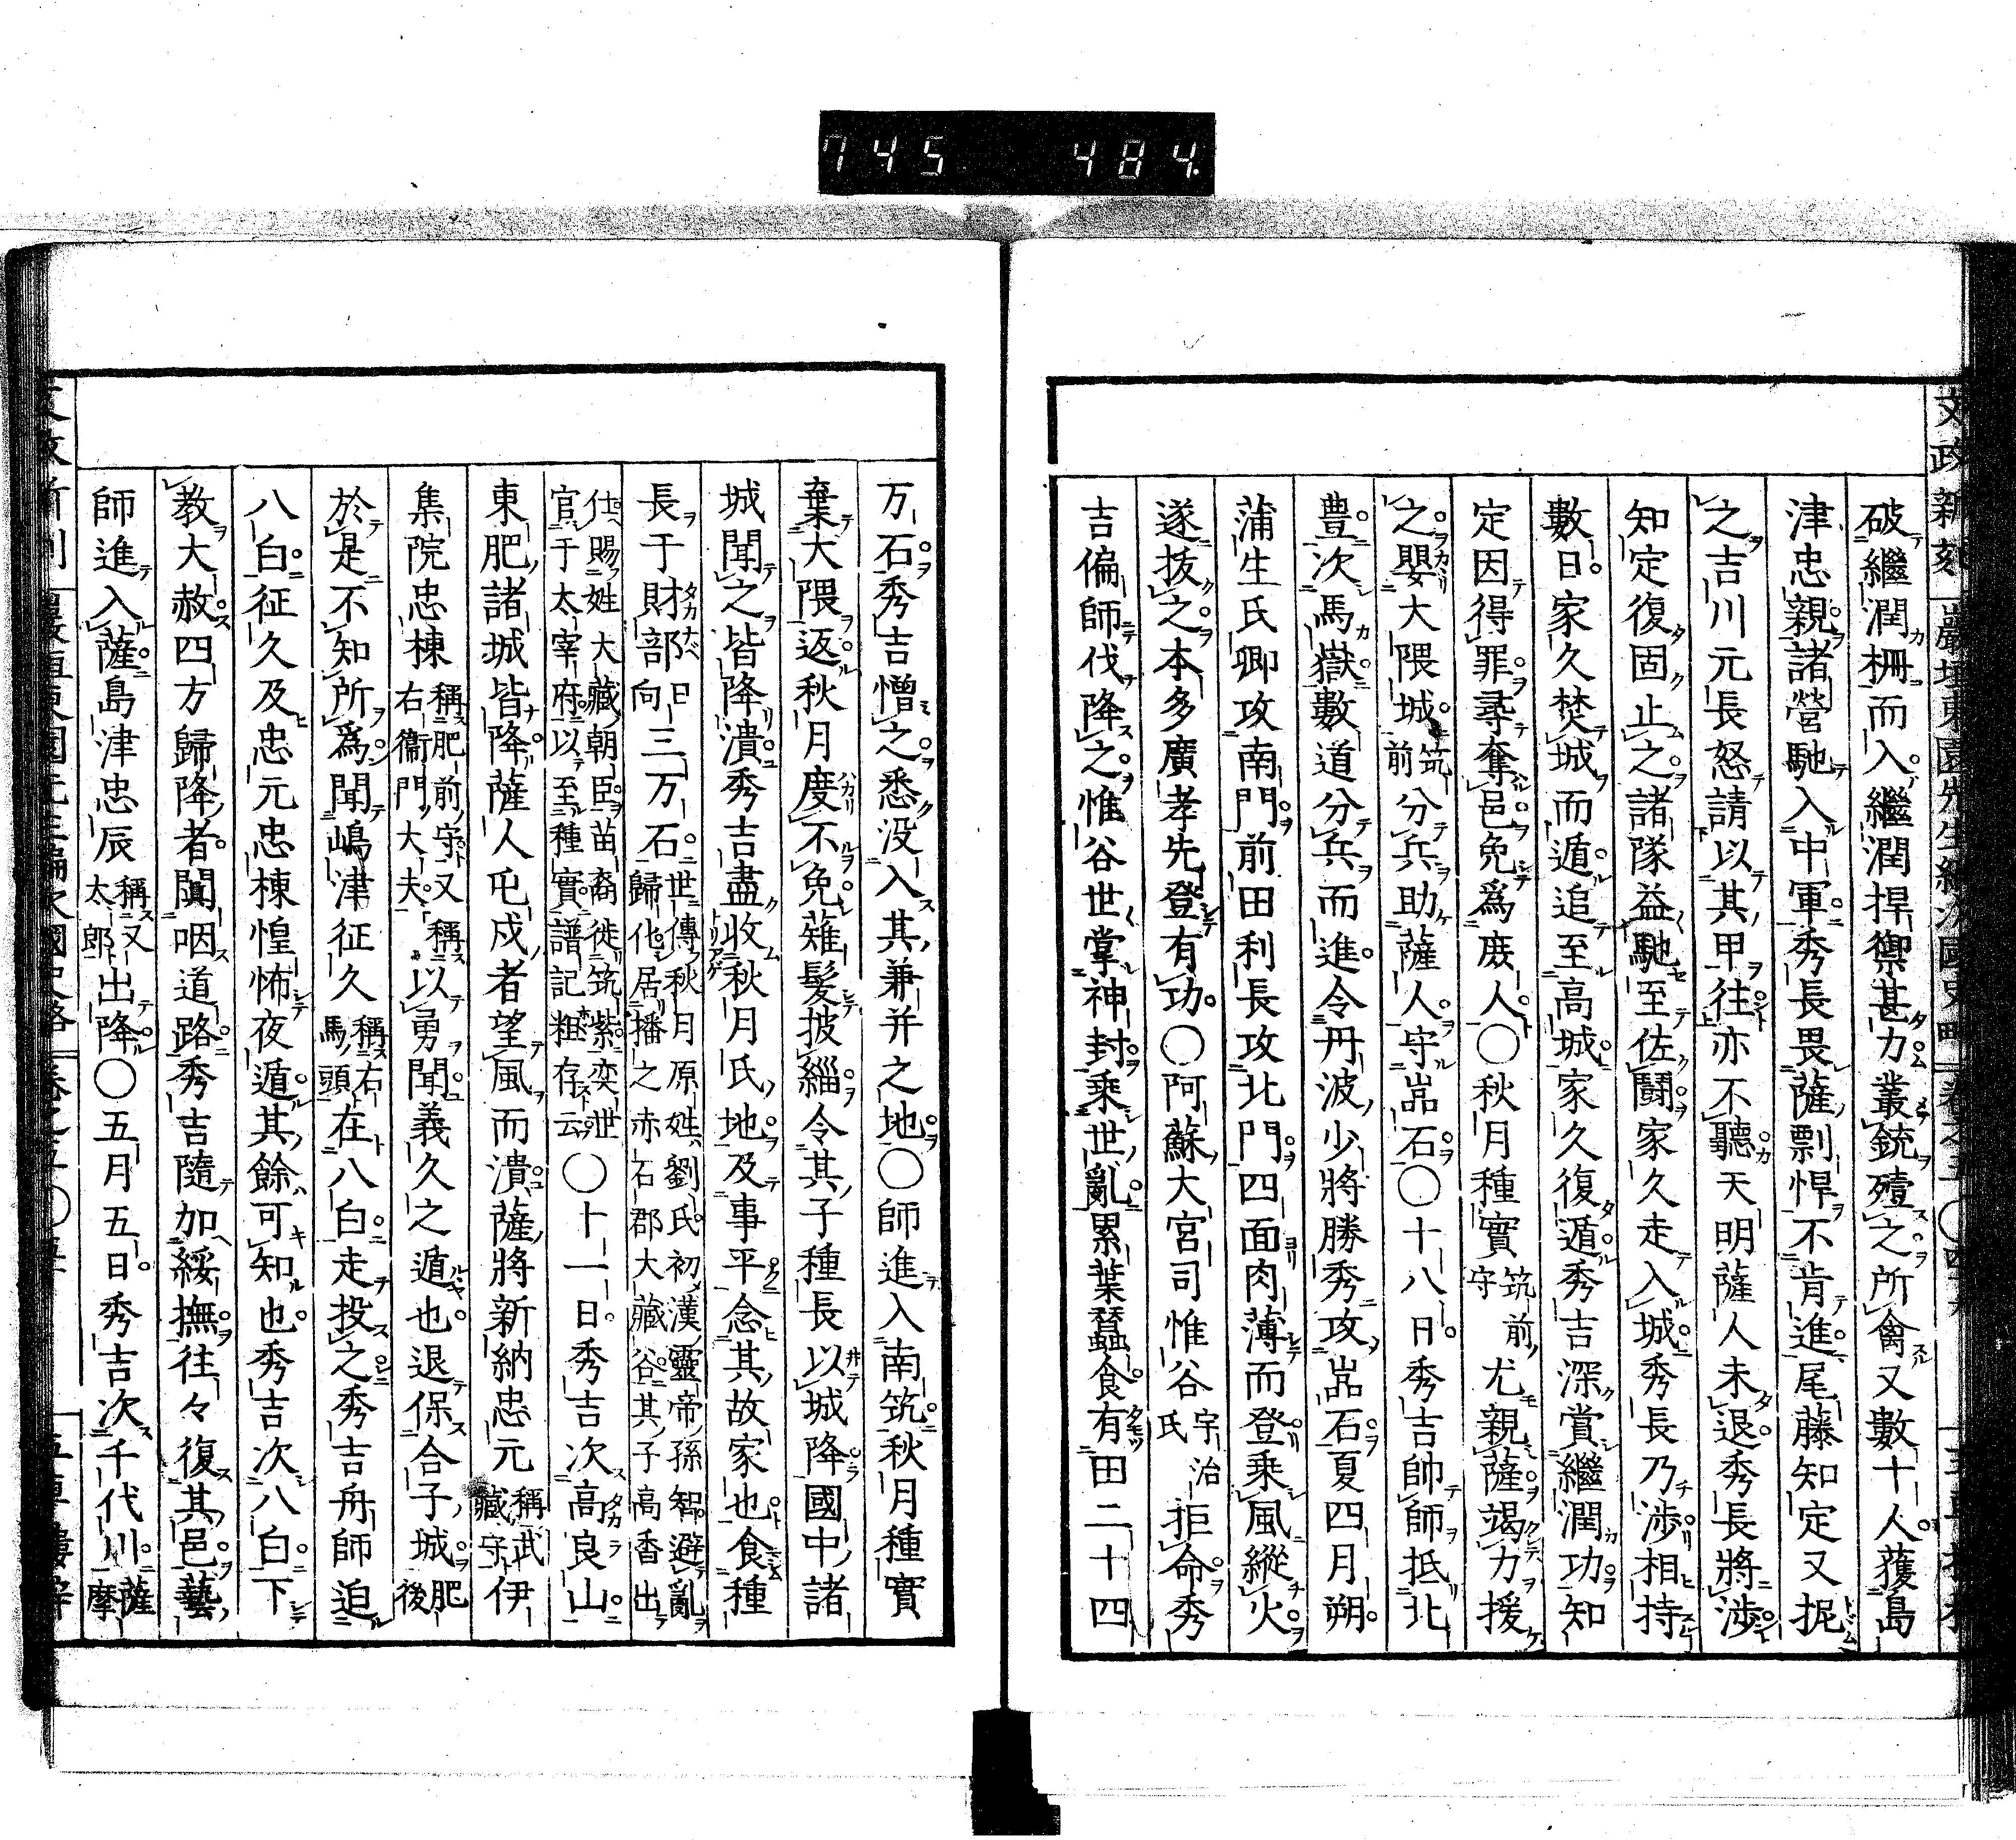 745 484.
破繼潤柵而入繼潤捍禦甚力叢銃殪之所禽又數十人獲島
津忠親諸營馳入中軍秀長畏薩剽悍不肯進尾藤知定又抳
之吉川元長怒請以其甲往亦不聽天明薩人未退秀長將涉
知定復固止之諸隊益馳至佐鬪家久走入城秀長乃涉相持
數日家久焚城而遁追至高城家久復遁秀吉深賞繼潤功知
定因得罪尋奪邑免爲庶人〇秋月種實筑前守尤親薩竭力援
之嬰大隈城筑前分兵助薩人守嵓石〇十八日秀吉帥師抵北
豊次馬嶽數道分兵而進令丹波少將勝秀攻嵓石夏四月朔
蒲生氏卿攻南門前田利長攻北門四面肉薄而登乘風縱火
遂拔之本多廣孝先登有功〇阿蘇大宮司惟谷宇治氏拒命秀
吉偏師伐降之惟谷世掌神封乘世亂累葉蠶食有田二十四
万石秀吉憎之悉没入其兼并之地〇師進入南筑秋月種實
棄大隈返秋月度不免薙髮披緇令其子種長以城降國中諸
城聞之皆降潰秀吉盡收秋月氏地及事平念其故家也食種
長于財部日向三万石世傳秋月原姓劉氏初漢靈帝孫智避亂歸化居播之赤石郡大藏谷其子高香出
仕賜姓大藏朝臣苗裔徙筑紫奕世官于太宰府以至種實譜記粗存云〇十一日秀吉次高良山
東肥諸城皆降薩人屯戍者望風而潰薩將新納忠元稱武藏守伊
集院忠棟稱肥前守又稱右衞門大夫以勇聞義久之遁也退保合子城肥後
於是不知所爲聞嶋津征久稱右馬頭在八白走投之秀吉舟師迫
八白征久及忠元忠棟惶怖夜遁其餘可知也秀吉次八白下
教大赦四方歸降者闐咽道路秀吉隨加綏撫往々復其邑藝
師進入薩島津忠辰稱又太郎出降〇五月五日秀吉次千代川薩摩